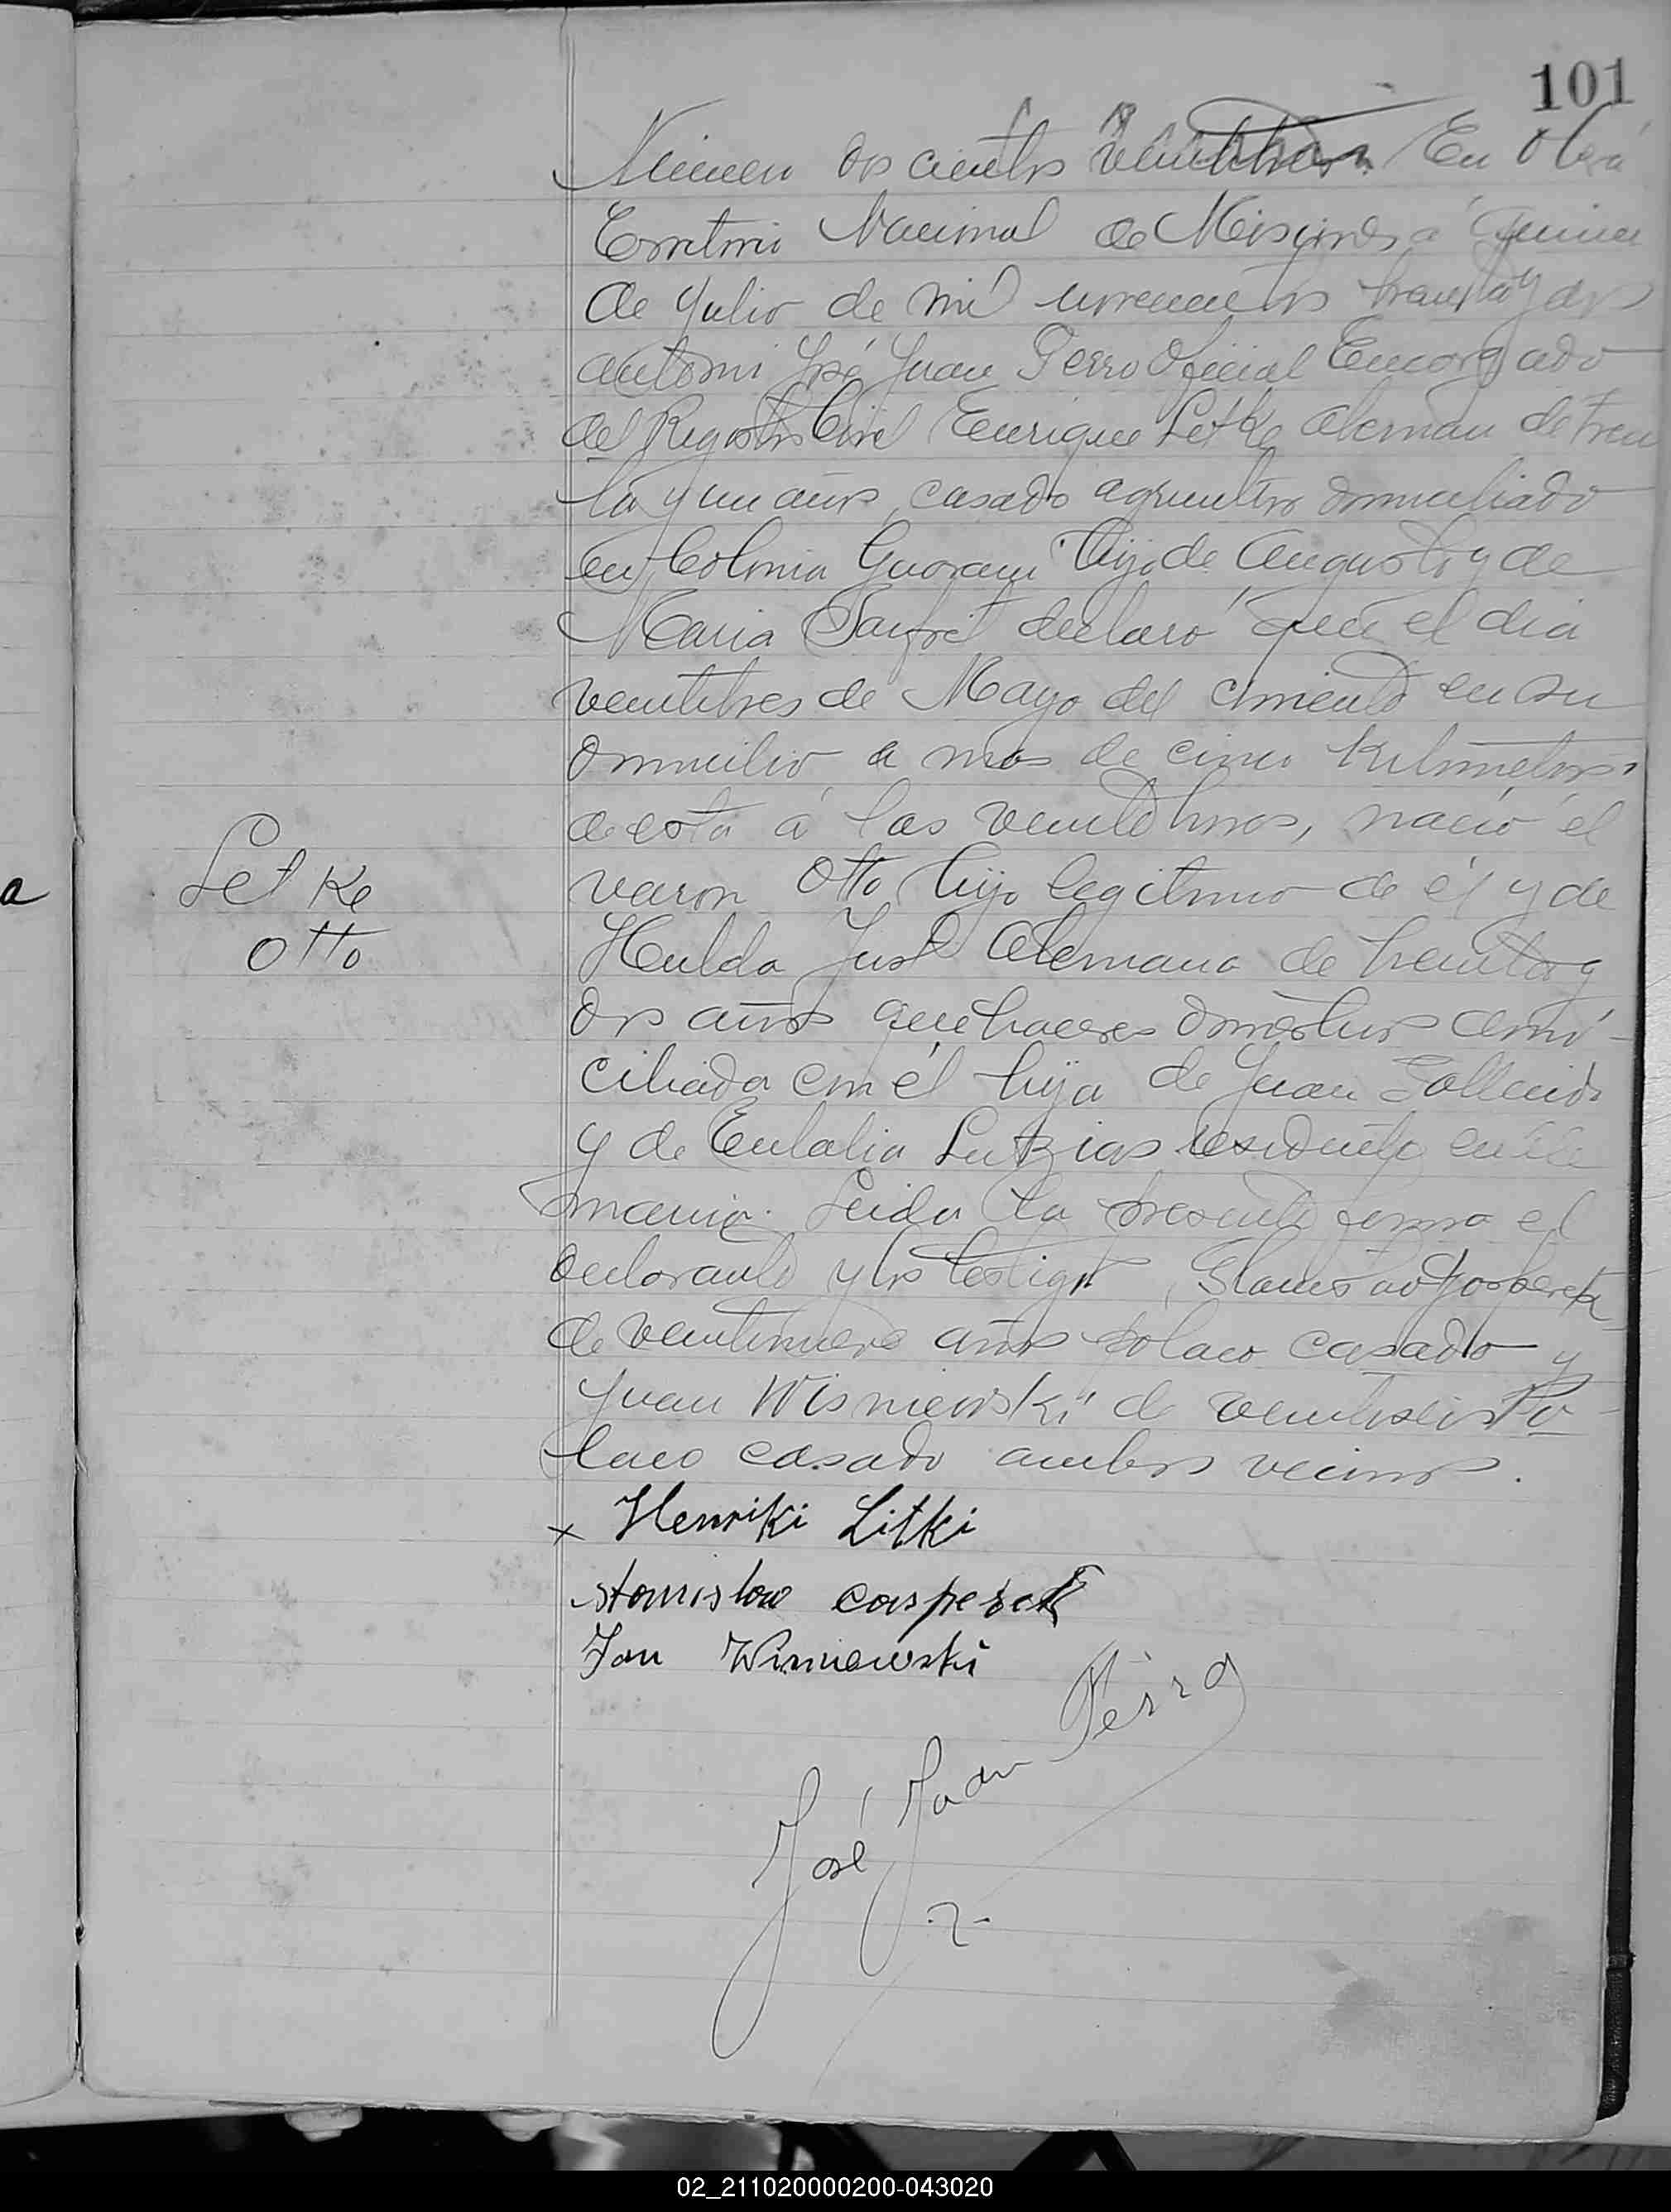 101
Número dos cientos En Oberá
Territorio Nacional de Misiones á quince
de Julio de mil novecientos treinta y dos
ante mi José Juan Perro Oficial Encargado
del Registro Civil Enrique Letke aleman de trein
ta y un años, casado agricultor domiciliado
en Colonia Guarani hijo de Augusto y de
Maria declaró que el dia
veintitres de Mayo del corriente en su
domicilio a mas de cinco Kilometros
de esta á las veinte horas, nació el
varon Otto hijo legitimo de él y de
Letke
Otto
a
Hulda Just Alemana de treinta y
dos años quehaceres domesticos domi-
ciliada con él hija de Juan
y de Eulalia Lutzias residente en Ale
mania. Leida la presente firma el
declarante y los testigos,
de veintinueve años polaco casado y
Juan Wisniewski de veintiseis Po-
laco casado ambos vecinos.
x Henriki Litki
Stanislaw
Jan Wisniewski
José Juan Perro
02_211020000200-043020